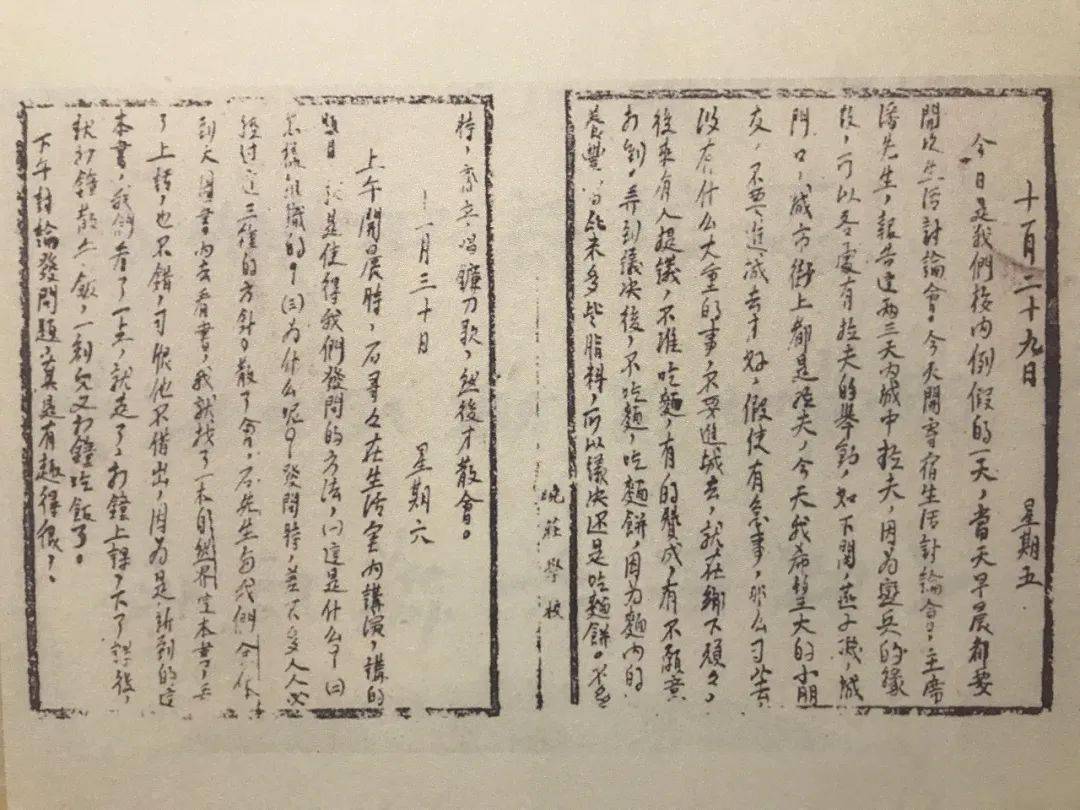 十一月二十九日　星期五
今日是我們校內例假的一天，當天早晨都要
開次生活討論會。今天開寄宿生活討論會，主席
潘先生，報告這兩三天內城中拉夫，因為變兵的緣
故，可以各處有拉夫的舉動，如下關，燕子磯，城
門口，城市街上都是拉夫，今天我希望大的小朋
友，不要進城去才好，假使有急事，那么可以去，
沒有什么大重的事，不要進城去，就在鄉下頑々，
後來有人提議，不准吃麵，有的贊成，有不願意
的，到弄到議決後，不吃麵，吃麵餅，因為麵內的
養豐，比米多些脂料，所以議決还是吃麵餅。
曉莊學校
時，齊立唱鐮刀歌，然後才散會。
十一月三十日　星期六
上午開晨時，石哥々在生活室內講演，講的
題目，就是使得我們發問的方法，(一)這是什么？(二)
怎樣組織的？(三)為什么呢？發問時，差不多人人必
經过這三種的方針。散了會，石先生與我們全体
到大圖書內去看書，我就找了一本自然界這本書，
了上話，也不錯，可恨他不借出，因為是新到的這
本書，我們看了一点，就走了，打鐘上課，下了課後，
就打鐘散上飯，一刻兒又打鐘吃飯了。
下午討論發問題，真是有趣得很。